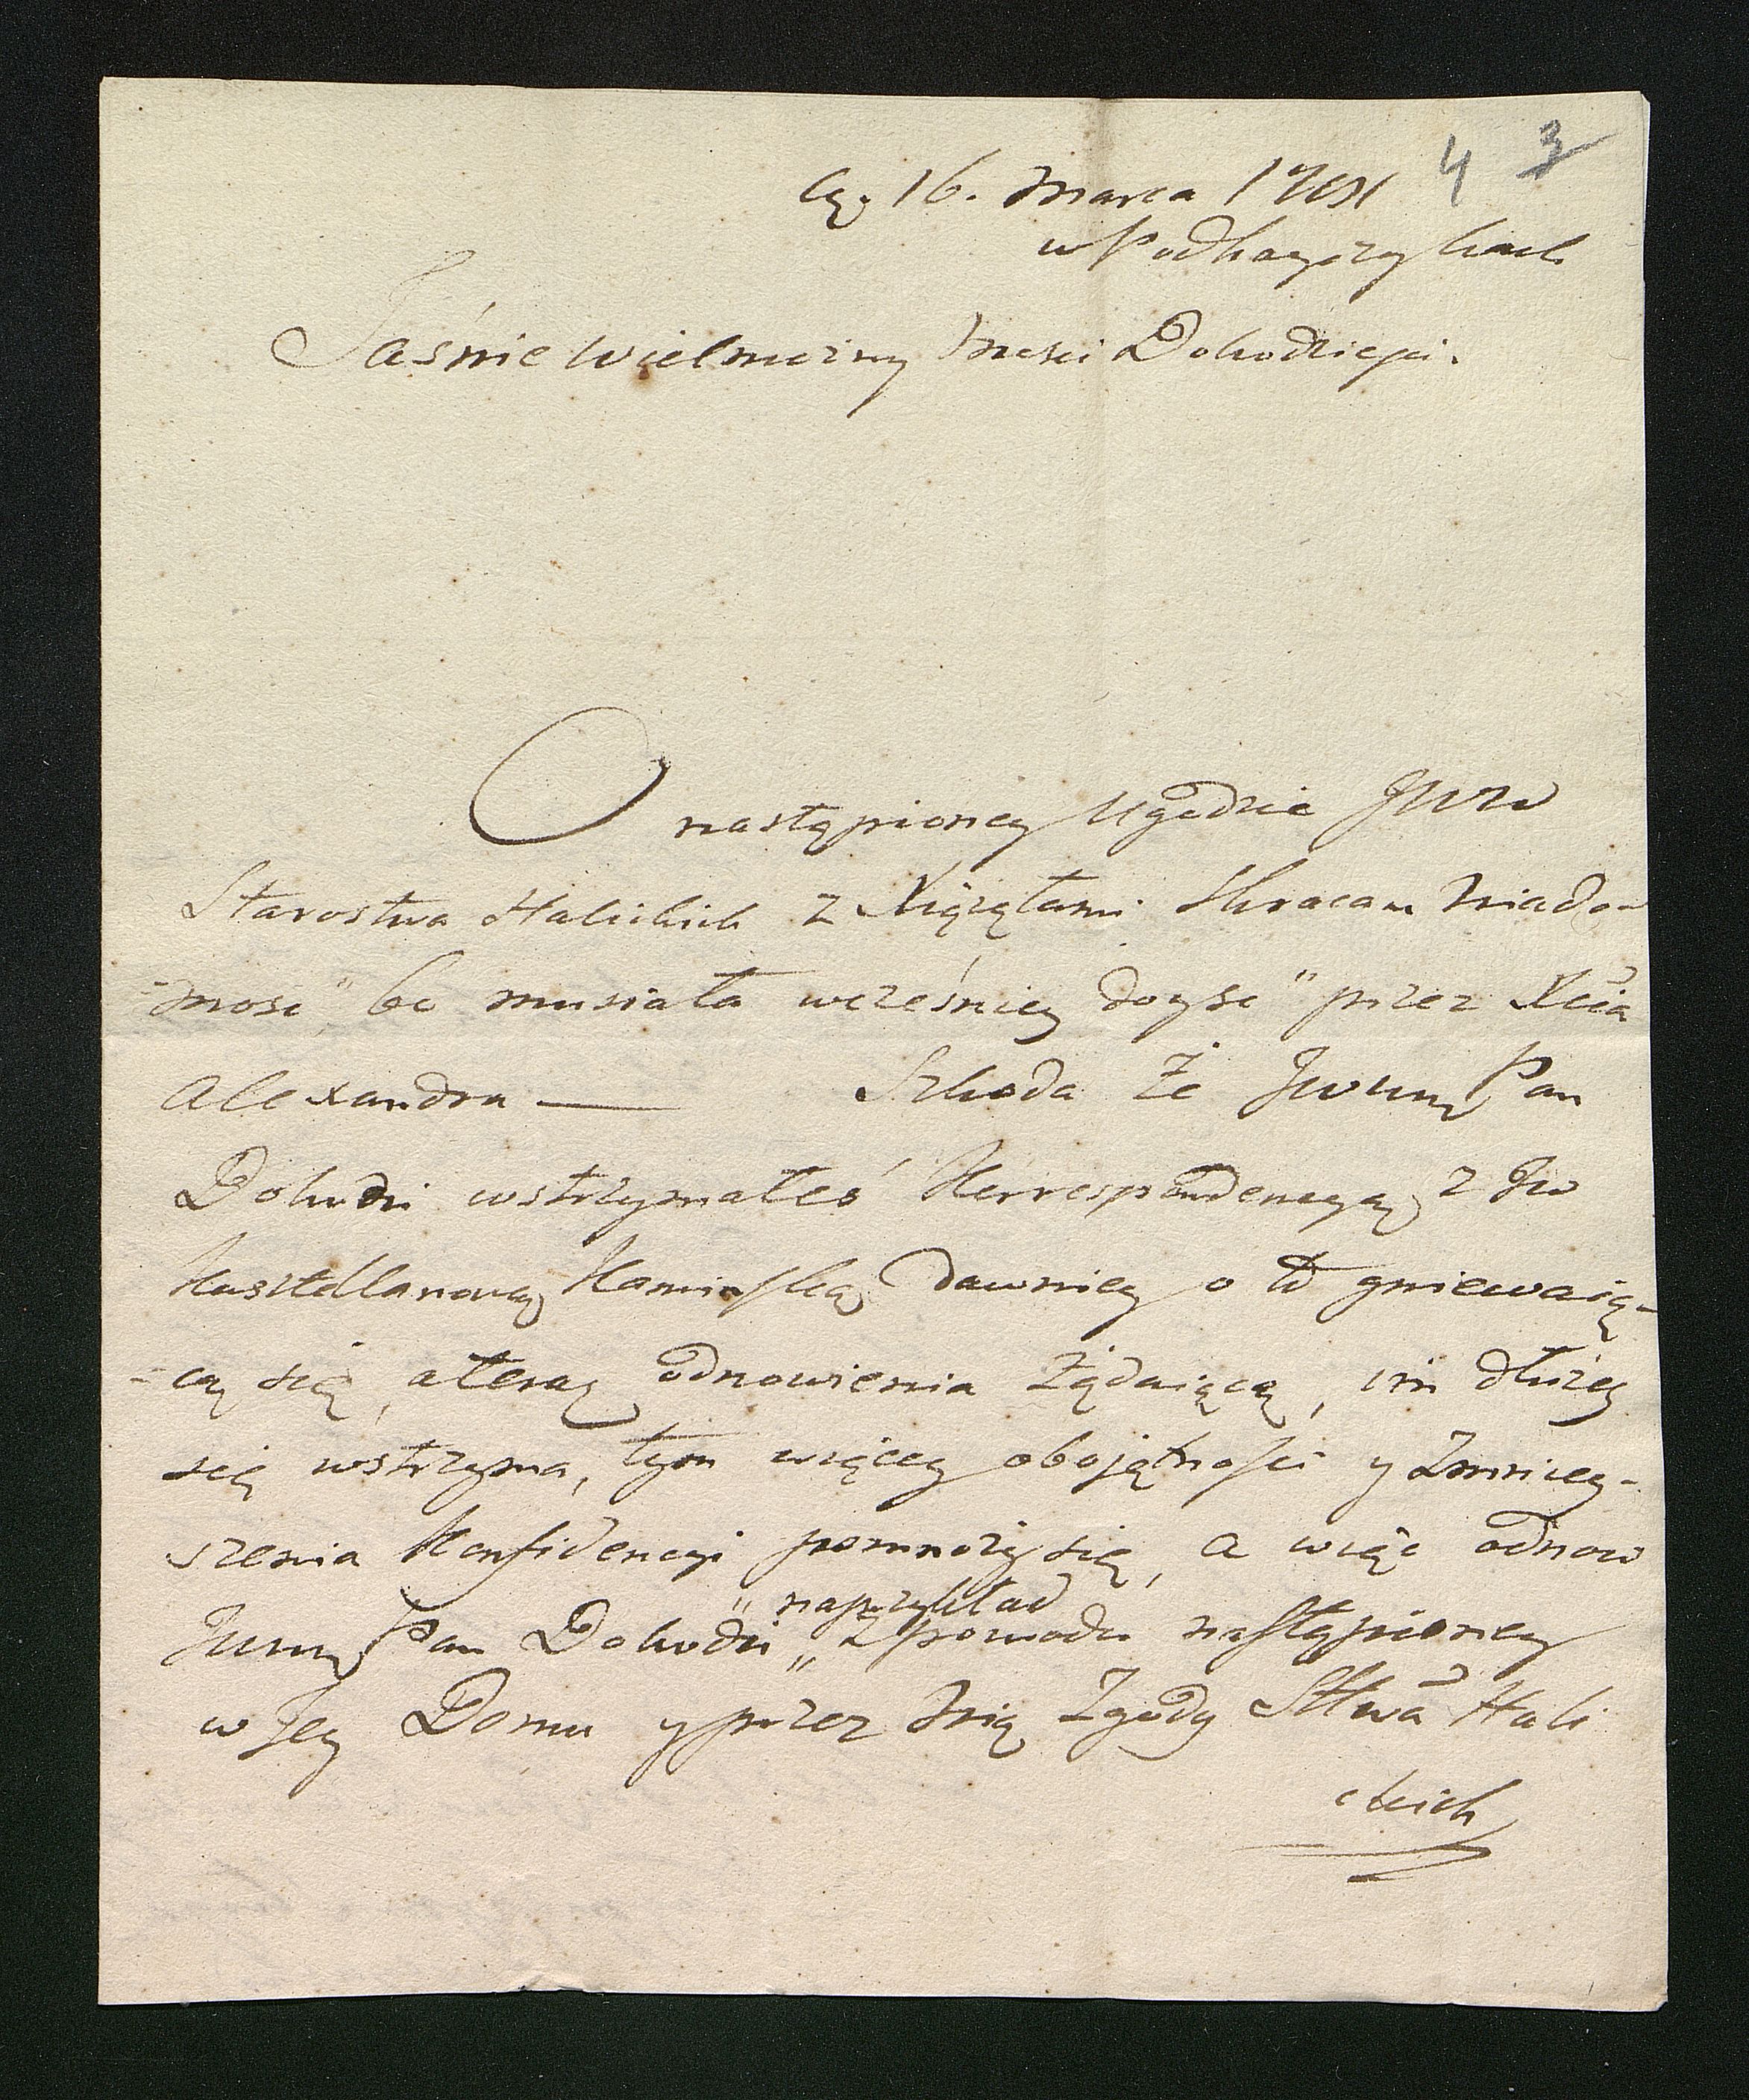 4 3
16. Marca
w Podhayczykach
Jaśnie Wielmożny Mośći Dobodzieju.
O nastąpioney Ugodzie JWW
Starostwa Halickich z Xiążętami skracam Wiado-
-mość, bo musiała wcześniey doyść przez Xcia
Alexandra — Szkoda że JWWny Pan
Dobodzi wstrzymałeś Korrespondencyą z JW
Kasztellanową Kamińską dawniey o to gniewaią-
-cą się, a teraz odnowienia żądaiącą, im dłużey
się wstrzyma, tym więcey oboiętności y Zmniey-
szenia Konfidencyi pomnoży się, a więc odnow
JWWny Pan Dobodzi „ naprzykład „ z powodu nastąpioney
w Jey Domu y przez Nią Zgody Sttwa Hali
ckich